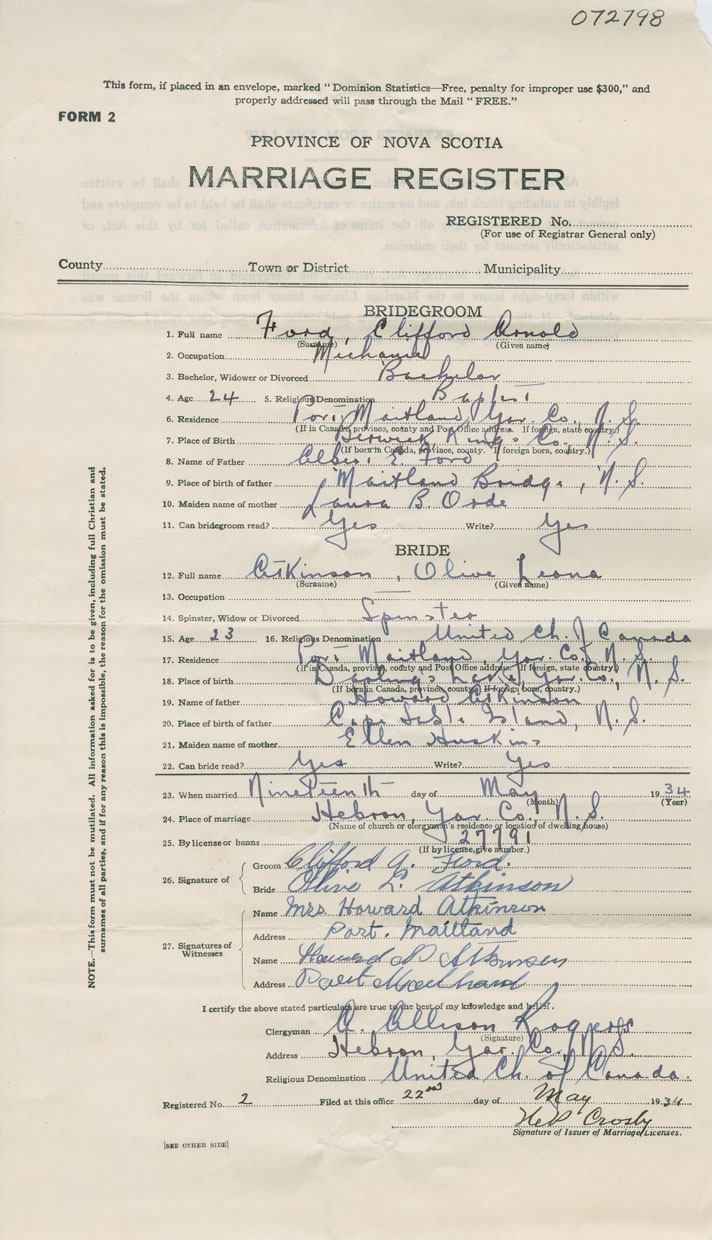 072798
This form, if placed in an envelope, marked "Dominion Statistics—Free, penalty for improper use $300," and
properly addressed will pass through the Mail "FREE."
FORM 2
PROVINCE OF NOVA SCOTIA
MARRIAGE REGISTER
REGISTERED No.
(For use of Registrar General only)
County Town or District Municipality
BRIDEGROOM
1. Full name Ford, Clifford Arnold
(Surname) (Given name)
2. Occupation
3. Bachelor, Widower or Divorced Bachelor
4. Age 24 5. Religious Denomination Baptist
6. Residence Port Maitland Yar. Co., N. S.
(If in Canada, province, county and Post Office address. If foreign, state country.)
7. Place of Birth Berwick Kings Co. N. S.
(If born in Canada, province, county. If foreign born, country.)
8. Name of Father Albert E. Ford
9. Place of birth of father Maitland Bridge, N. S.
10. Maiden name of mother Laura B. Orde
11. Can bridegroom read? Yes Write? Yes
BRIDE
12. Full name Atkinson, Olive Leona
(Surname) (Given name)
13. Occupation —
14. Spinster, Widow or Divorced Spinster
15. Age 23 16. Religious Denomination United Ch. of Canada
17. Residence Port Maitland Yar. Co., N. S.
(If in Canada, province, county and Post Office address. If foreign, state country)
18. Place of birth Darling's Lake, Yar. Co., N. S.
(If born in Canada, province, county. If foreign born, country.)
19. Name of father Howard Atkinson
20. Place of birth of father Cape Sable Island, N. S.
21. Maiden name of mother Ellen Huskins
22. Can bride read? Yes Write? Yes
23. When married Nineteenth day of May 1934
(Month) (Year)
24. Place of marriage Hebron, Yar. Co., N. S.
(Name of church or clergyman's residence or location of dwelling house)
25. By license or banns 27791
(If by license, give number.)
26. Signature of
Groom Clifford A. Ford.
Bride Olive L. Atkinson
27. Signatures of Witnesses
Name Mrs Howard Atkinson
Address Port. Maitland
Name Howard Atkinson
Address Port Maitland
I certify the above stated particulars are true to the best of my knowledge and belief.
Clergyman A. Allison Rogers
(Signature)
Address Hebron, Yar. Co., N. S.
Religious Denomination United Ch. of Canada.
Registered No. 2 Filed at this office 22nd day of May 1934
Crosby
Signature of Issuer of Marriage Licenses.
[SEE OTHER SIDE]
NOTE.—This form must not be mutilated. All information asked for is to be given, including full Christian and
surnames of all parties, and if for any reason this is impossible, the reason for the omission must be stated.